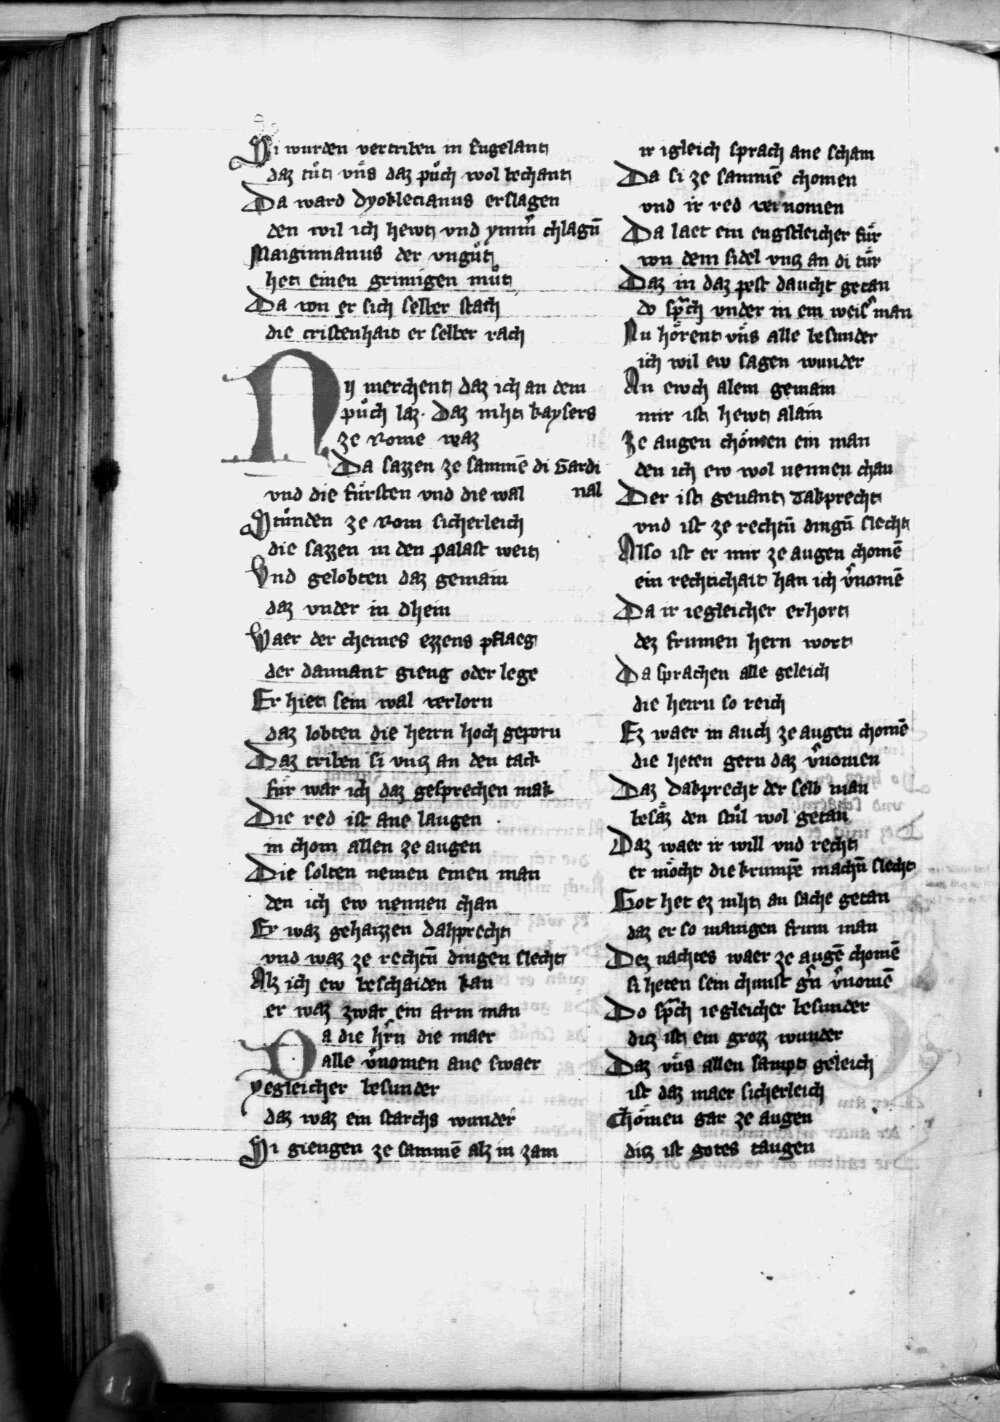 Si wurden vertriben in Engelant
daz tuͦt vns daz puͦch wol bechant
Da ward Dyoklecianus erslagen
den wil ich hewt vnd ymm̄ chlagn̄
Maiginnianus der vnguͦt
het einen grimigen muͦt
Da von er sich selber stach
die cristenhait er selber rach
Nv merchent daz ich an dem
puͦch laz. Daz niht kaysers
ze Rome waz
Da sazzen ze sammē di Gardi
nal
vnd die fuͤrsten vnd die wal
Stuͤnden ze Rom sicherleich
die sazzen in den palast weit
Vnd gelobten daz gemain
daz vnder in dhein
Waer der cheines ezzens pflaeg
der dannant gieng oder lege
Er hiet sein wal verlorn
daz lobten die herrn hoch geporn
Daz triben si vncz an den tack
fuͤr war ich daz gesprechen mak
Die red ist ane laugen
in chom allen ze augen
Die solten nemen einen man
den ich ew nennen chan
Er waz gehaizzen Dakprecht
vnd waz ze rechtn̄ dingen slecht
Alz ich ew bescheiden kan
er waz zwar ein arm man
Da die hr̄n die maer
alle v̄nomen ane swaer
yegleicher besunder
daz waz ein starchs wunder
Si giengen ze sammē alz in zam
ir igleich sprach ane scham
Da si ze sammē chomen
vnd ir red vernomen
Da laet ein engstleicher fuͤr
von dem sidel vncz an di tuͤr
Daz in daz pest daucht getan
do spͣch vnder in ein weisͬ man
Nu hoͤrent vns alle besunder
ich wil ew sagen wunder
An ewch alem gemain
mir ist hewt alain
Ze augen choͤmen ein man
den ich ew wol nennen chan
Der ist genant Dakprecht
vnd ist ze rechtn̄ dingn̄ slecht
Also ist er mir ze augen chomē
ein rechtichait han ich v̄nomē
Da ir iegleicher erhort
dez frumen hern wort
Da sprachen alle geleich
die herrn so reich
Ez waer in auch ze augen chomē
die heten gern daz v̄nomen
Daz Dakprecht der selb man
besaͤz den stuͤl wol getan
Daz waer ir will vnd recht
er moͤcht die krumpē machn̄ slecht
Got het ez niht an sache getan
daz er so manigen frum man
Dez nachtes waer ze augē chomē
si heten sein chunst gr̄n v̄nomē
Do spͣch iegleicher besunder
dicz ist ein grozz wunder
Daz vns allen sampt geleich
ist daz maer sicherleich
Choͤmen gar ze augen
dicz ist gotes taugen